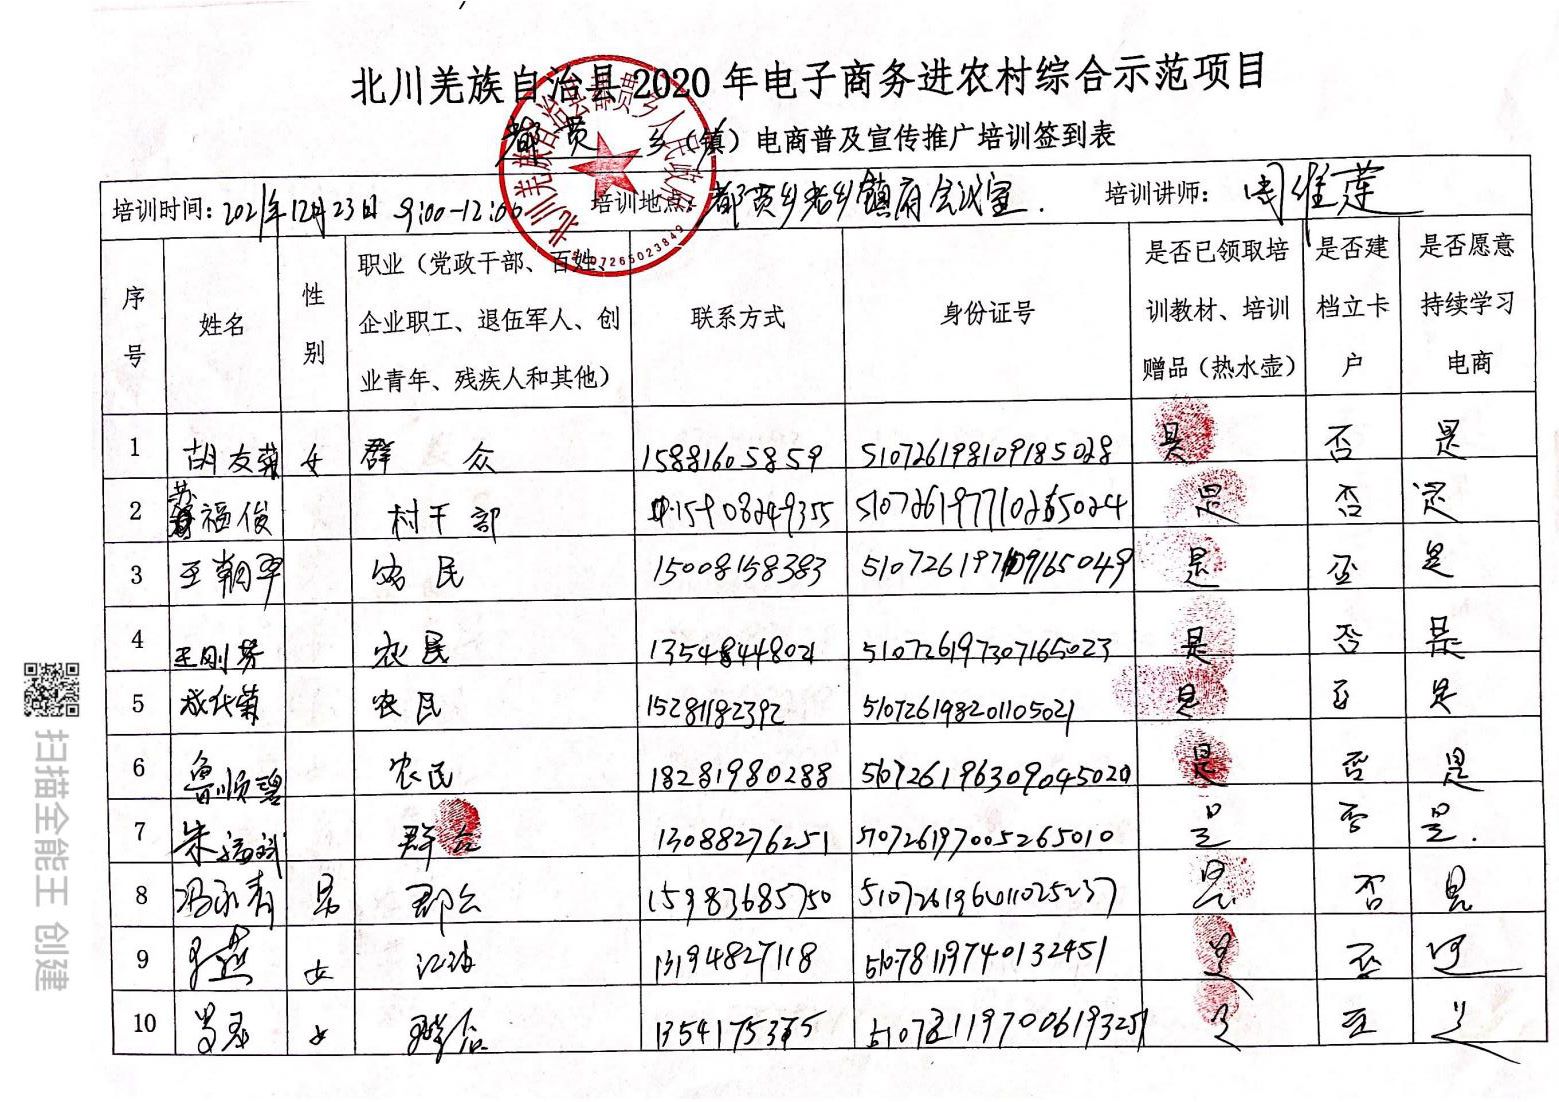 北川羌族自治县 2020 年电子商务进农村综合示范项目
都贯 乡（镇）电商普及宣传推广培训签到表
北川羌族自治县都贯乡人民政府
5107265023849
培训时间：2021年12月23日 9:00-12:00 培训地点：都贯乡老乡镇府会议室. 培训讲师：周维莲
序号 姓名 性别 职业（党政干部、百姓、企业职工、退伍军人、创业青年、残疾人和其他） 联系方式 身份证号 是否已领取培训教材、培训赠品（热水壶） 是否建档立卡户 是否愿意持续学习电商
1 胡友菊 女 群众 15881605859 510726198109185028 是 否 是
2 苏福俊 村干部 15908249355 是 否 是
3 王朝平 农民 15008158383 是 否 是
4 王刚芳 农民 13548448021 510726197307165023 是 否 是
5 成代菊 农民 15281182392 510726198201105021 是 否 是
6 鲁顺碧 农民 18281980288 510726196309045020 是 否 是
7 朱福斌 群众 13088276251 510726197005265010 是 否 是.
8 冯永青 男 群众 15983685750 是 否 是
9 女 13194827118 51078119740132451 是 否
10 女 群众 是 否 是
扫描全能王 创建